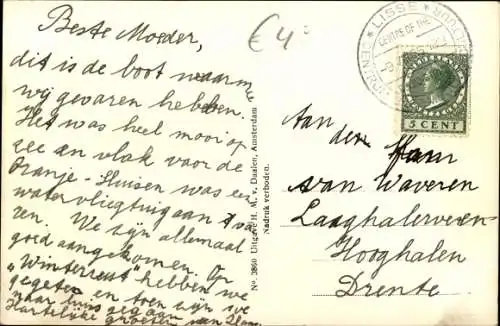 Beste Moeder,
dit is de boot waarm
wij gevaren hebben.
Het was heel mooi op
zee en vlak voor de
Oranje-Sluisen was een
watervliegtuig aan 't va
ren. We zijn allemaal
goed aangekomen. Op
"Winterrust" hebben we
gegeten en toen zijn we
naar huis gegaan.
Hartelijke groeten van
€4,-
No. 3860 Uitgave H. M. v. Daalen, Amsterdam
Nadruk verboden.
LISSE
CENTRE OF THE
5 CENT
Aan den Heer
van Waveren
Laaghalerveen
Hooghalen
Drente